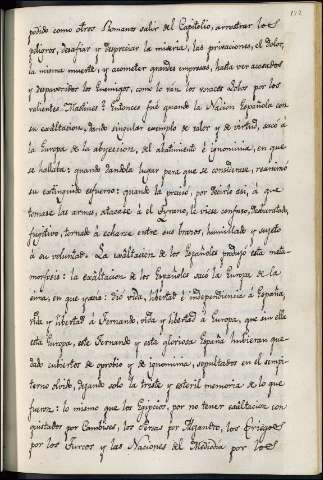 112
podido como otros Romanos salir del Capitolio, arrostrar los
peligros, desafiar y despreciar la miseria, las privaciones, el dolor,
la misma muerte, y acometer grandes empresas, hasta ver acosados
y despavoridos los Enemigos, como lo van los voraces Lobos por los
valientes Mastines? Entonces fue quando la Nacion Española con
su exâltacion, dando singular exemplo de valor y de virtud, sacó á
la Europa de la abyeccion, del abatimiento é ignominia, en que
se hallaba: quando dandola lugar para que se considerase, reanimó
su extinguido esfuerzo: quando la precisó, por decirlo asi, á que
tomase las armas, atacase á el Tyrano, le viese confuso, desbaratado,
fugitivo, tornado á echarse entre sus brazos, humillado y sujeto
á su voluntad. La exâltacion de los Españoles produjo esta meta-
morfosis: la exâltacion de los Españoles sacó la Europa de la
sima, en que yacia: dió vida, libertad é independiencia á España,
vida y libertad á Fernando, vida y libertad á Europa, que sin ella
esta Europa, este Fernando y esta gloriosa España hubieran que-
dado cubiertos de oprobio y de ignominia, sepultados en el sempi-
terno olvido, dejando solo la triste y esteril memoria de lo que
fueron: lo mismo que los Egipcios, por no tener exâltacion con-
quistados por Cambises, los Persas por Alejandro, los Griegos
por los Turcos y las Naciones del Mediodia por los